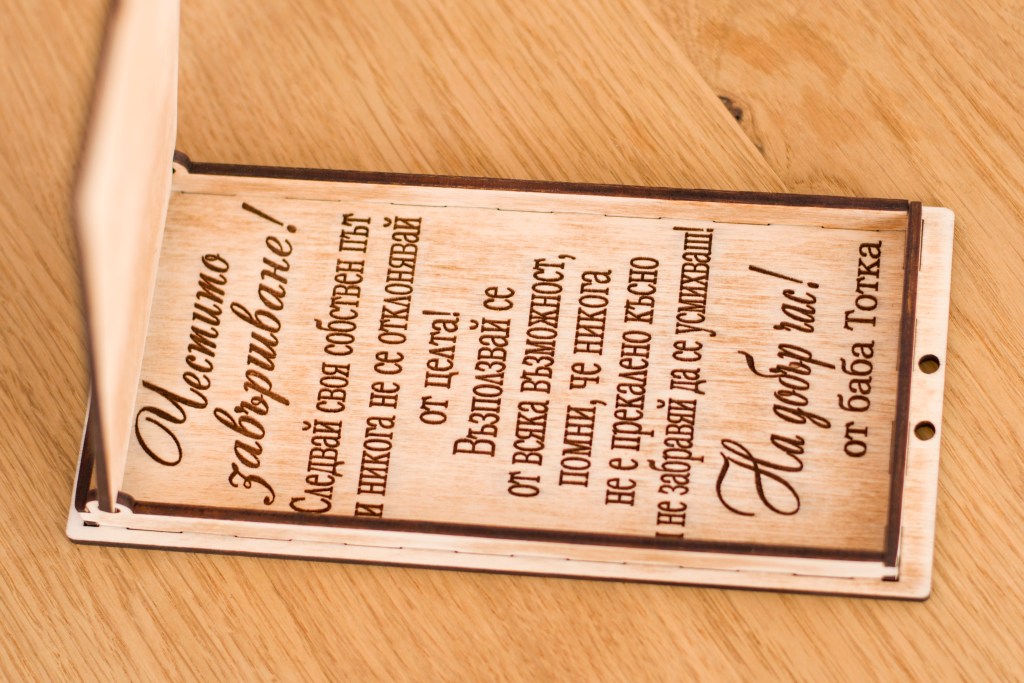 Честито
завършване!
Следвай своя собствен път
и никога не се отклонявай
от целта!
Възползвай се
от всяка възможност,
помни, че никога
не е прекалено късно
и не забравяй да се усмихваш!
На добър час!
от баба Тотка